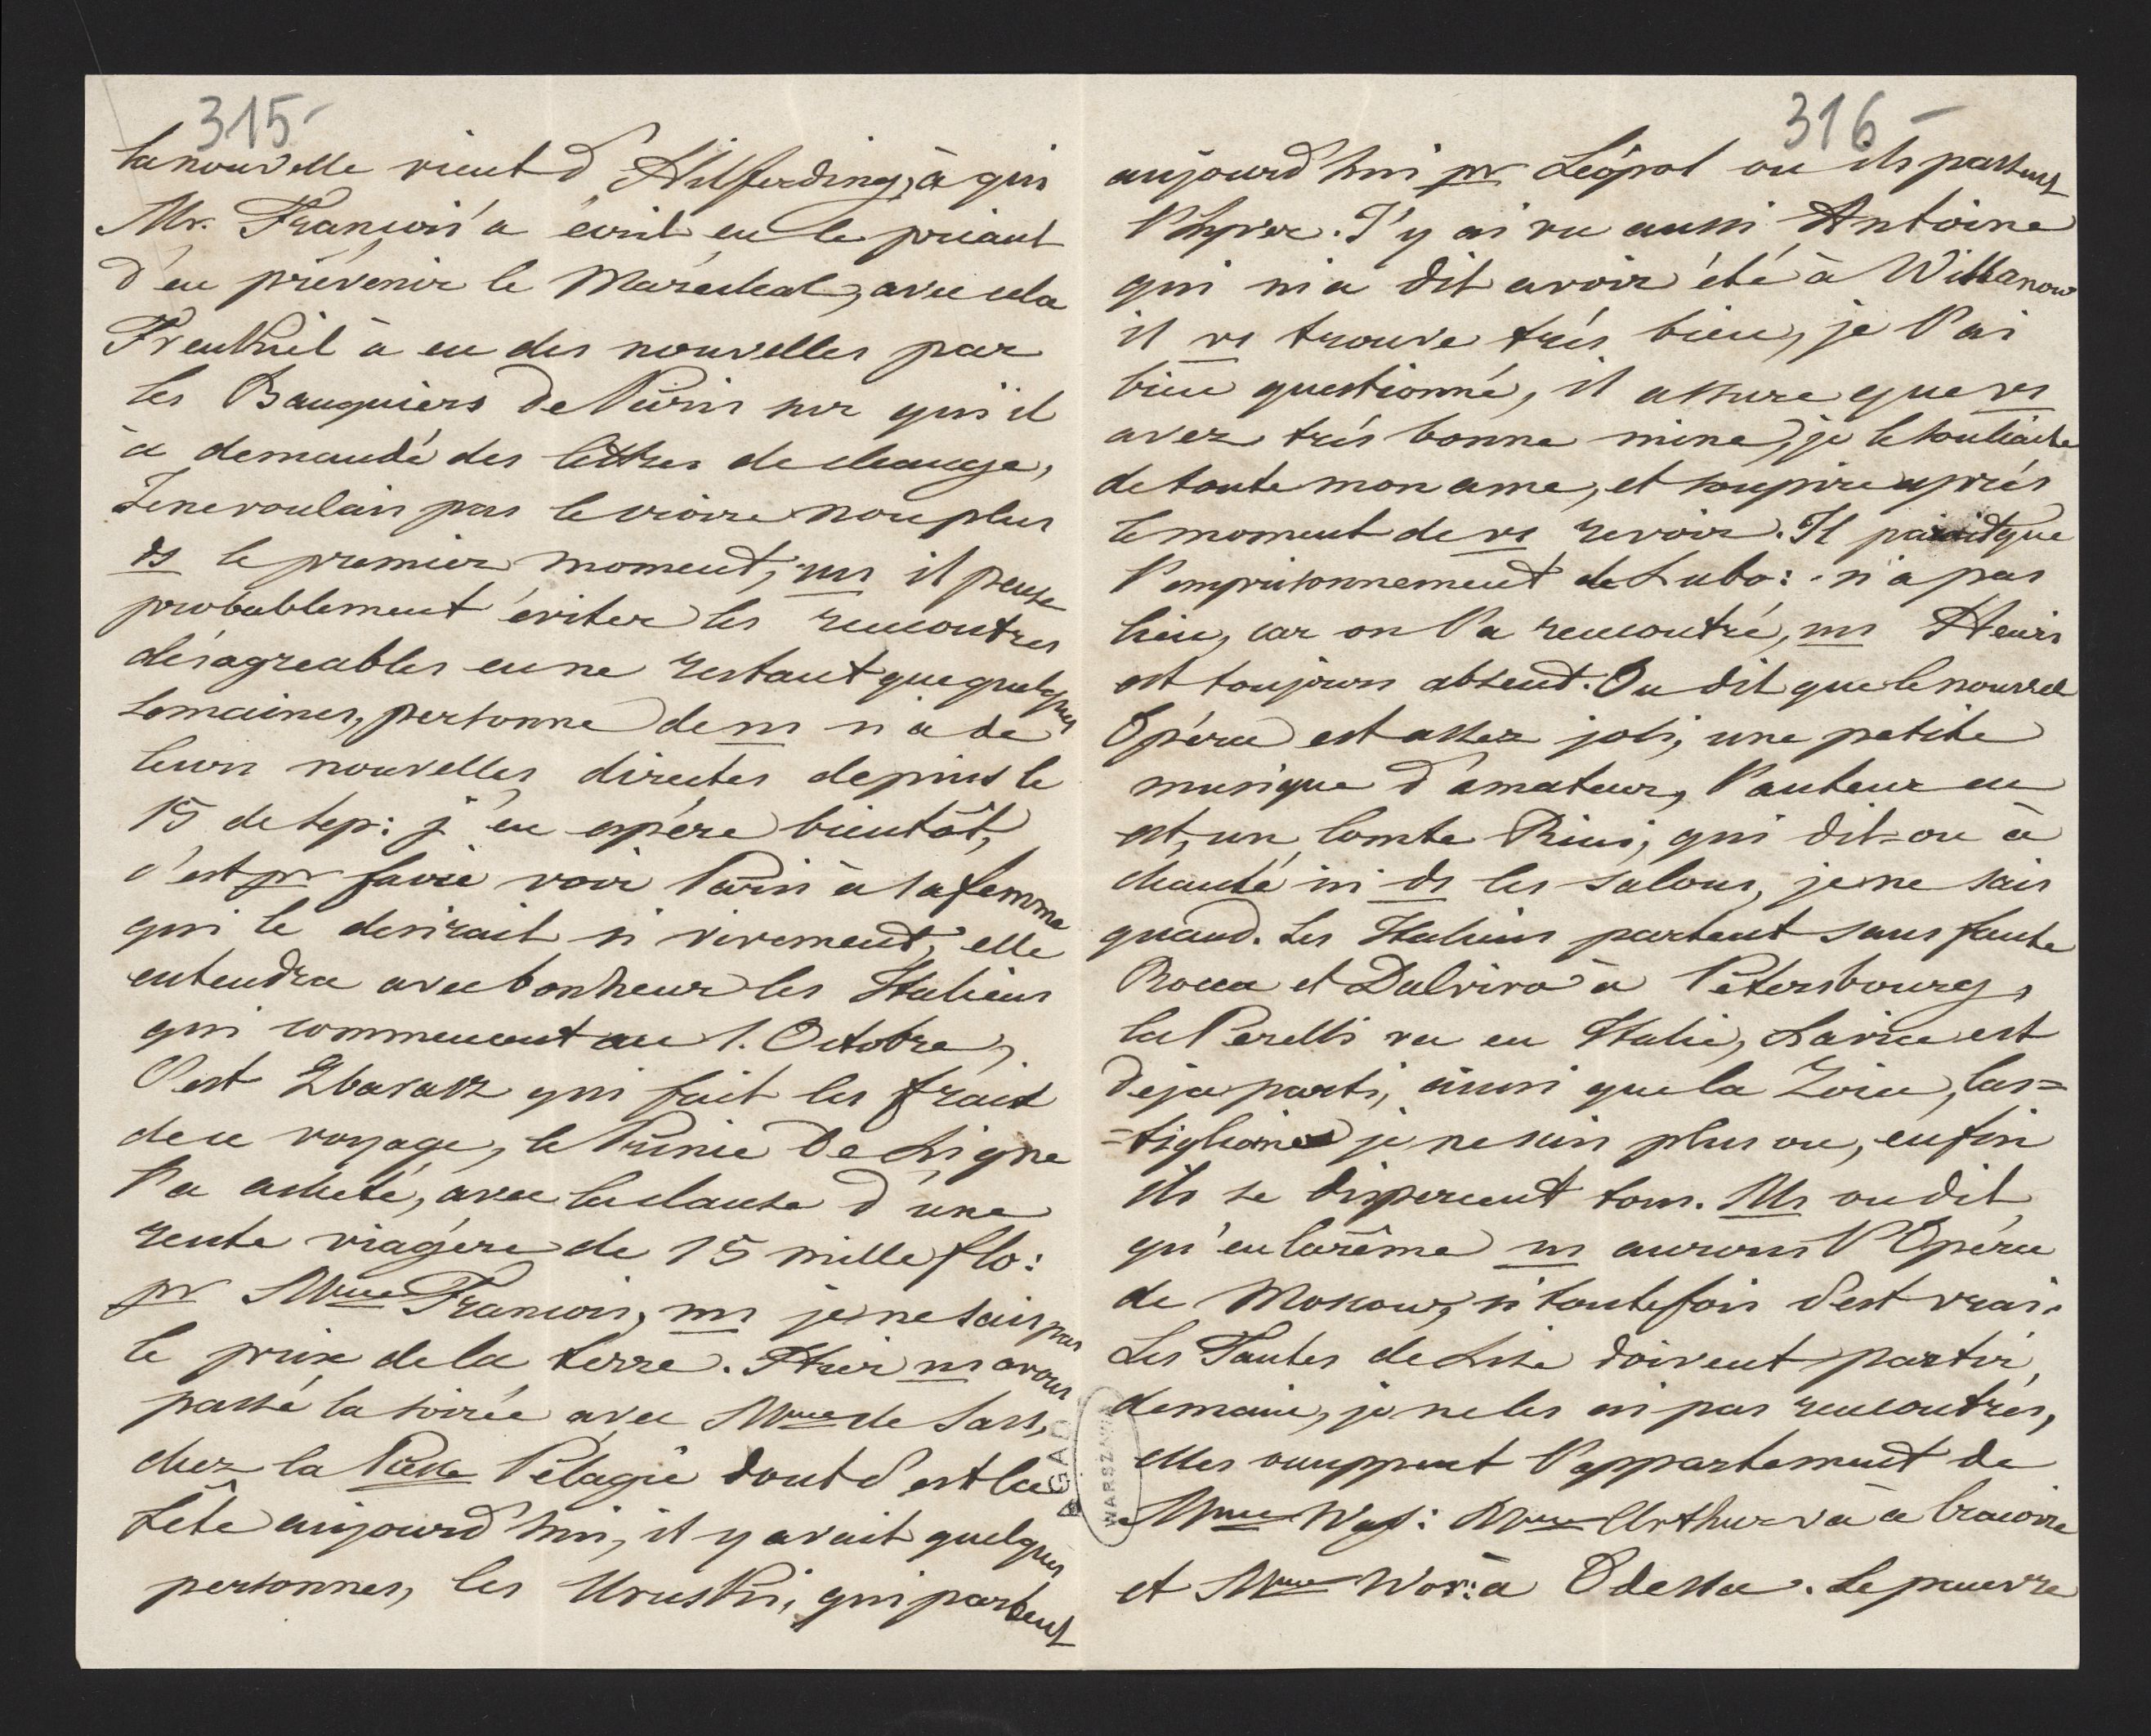 315
la nouvelle vient d'Hilferding, à qui
Mr. François a écrit en le priant
d'en prévenir le Maréchal, avec cela
Frenkiel à eu des nouvelles par
les Banquiers de Paris sur qui il
à demandé des lettres de change,
Je ne voulais pas le croire non plus
ds le premier moment, ms il pense
probablement éviter les rencontres
désagreables en ne restant que quelques
semaines, personne de ns n'a de
leurs nouvelles directes depuis le
15 de sep: j'en espére bientôt,
c'est pr faire voir Paris à sa femme
qui le desirait si vivement, elle
entendra avec bonheur les Italiens
qui commencent au 1. Octobre,
C'est Zbarasz qui fait les fraix
de ce voyage, le Prince De Ligne
l'a acheté, avec la clause d'une
rente viagére de 15 mille flo:
pr Mme François, ms je ne sais pas
le prix de la terre. Hier ns avons
passé la soirée avec Mme de Sass,
chez la Psse Pélagie dont c'est la
fête aujourd'hui, il y avait quelques
personnes, les Uruski, qui partent
316
aujourd'hui pr Léopol ou ils passent
l'hyver. J'y ai vu aussi Antoine
qui m'a dit avoir été à Willanow
il vs trouve très bien, je l'ai
bien questionné, il assure que vs
avez très bonne mine, je le souhaite
de toute mon ame, et soupire après
le moment de vs revoir. Il parait que
l'emprisonnement de Lubo: n'a pas
lieu, car on l'a rencontré, ms Henri
est toujours absent. On dit que le nouvel
Opéra est assez joli, une petite
musique d'amateur, l'auteur en
est, un Comte Rini, qui dit-on à
chanté ici ds les salons, je ne sais
quand. Les Italiens partent sans faute
Rocca et Dalviro à Pétersbourg,
la Perelli va en Italie, est
deja parti, ainsi que la Zoia, Cas=
=tiglione je ne sais plus ou, enfin
ils se dispercent tous. Ms on dit
qu'en Carême ns aurons l'Opéra
de Moscou, si toutefois c'est vrai.
Les Tantes de Lise doivent partir
demain, je ne les ai pas rencontrés,
elles occuppent l'appartement de
Mme Mme Arthur và a Cracovie
et Mme Wor: à Odessa. Le pauvre
AGAD
WARSZAWA